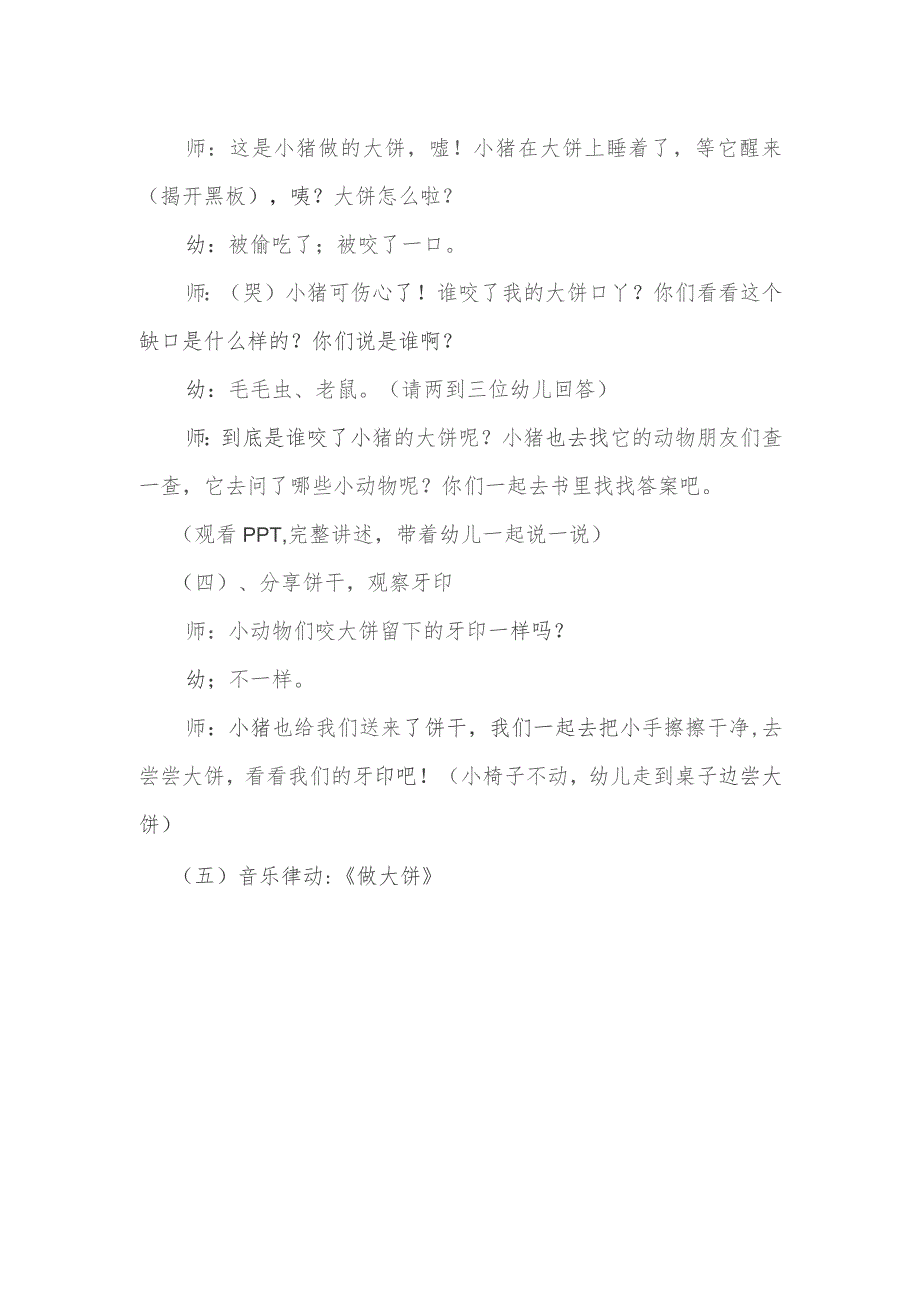 师：这是小猪做的大饼，嘘！小猪在大饼上睡着了，等它醒来
（揭开黑板），咦？大饼怎么啦？
幼：被偷吃了；被咬了一口。
师：（哭）小猪可伤心了！谁咬了我的大饼口丫？你们看看这个
缺口是什么样的？你们说是谁啊？
幼：毛毛虫、老鼠。（请两到三位幼儿回答）
师：到底是谁咬了小猪的大饼呢？小猪也去找它的动物朋友们查
一查，它去问了哪些小动物呢？你们一起去书里找找答案吧。
（观看 PPT,完整讲述，带着幼儿一起说一说）
（四）、分享饼干，观察牙印
师：小动物们咬大饼留下的牙印一样吗？
幼；不一样。
师：小猪也给我们送来了饼干，我们一起去把小手擦擦干净,去
尝尝大饼，看看我们的牙印吧！（小椅子不动，幼儿走到桌子边尝大
饼）
（五）音乐律动:《做大饼》